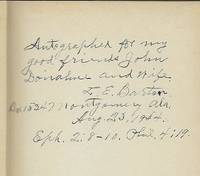 Autographed for my
good friends John
Donahue and wife
L. E. Barton
Box 1534 Montgomery Ala.
Aug. 23, 1954.
Eph. 2:8-10. Phil. 4:19.